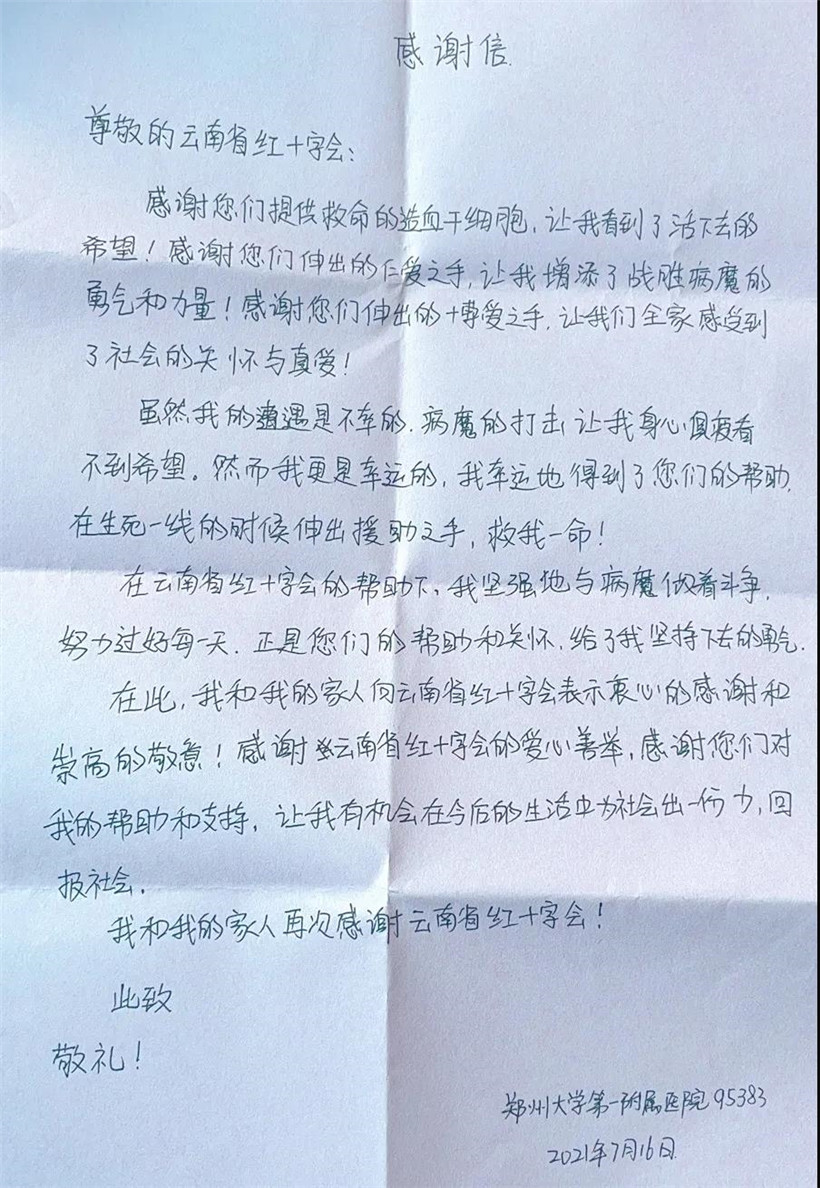 感谢信.
尊敬的云南省红十字会:
感谢您们提供救命的造血干细胞,让我看到了活下去的
希望!感谢您们伸出的仁爱之手,让我增添了战胜病魔的
勇气和力量!感谢您们伸出的博爱之手,让我们全家感受到
了社会的关怀与真爱!
虽然我的遭遇是不幸的.病魔的打击让我身心俱疲看
不到希望。然而我更是幸运的,我幸运地得到了您们的帮助.
在生死一线的时候伸出援助之手,救我一命!
在云南省红十字会的帮助下、我坚强地与病魔做着斗争.
努力过好每一天.正是您们的帮助和关怀.给了我坚持下去的勇气.
在此,我和我的家人向云南省红十字会表示衷心的感谢和
崇高的敬意!感谢云南省红十字会的爱心善举,感谢您们对
我的帮助和支持,让我有机会在今后的生活中为社会出一份力,回
报社会.
我和我的家人再次感谢云南省红十字会!
此致
敬礼!
郑州大学第一附属医院95383
2021年7月16日